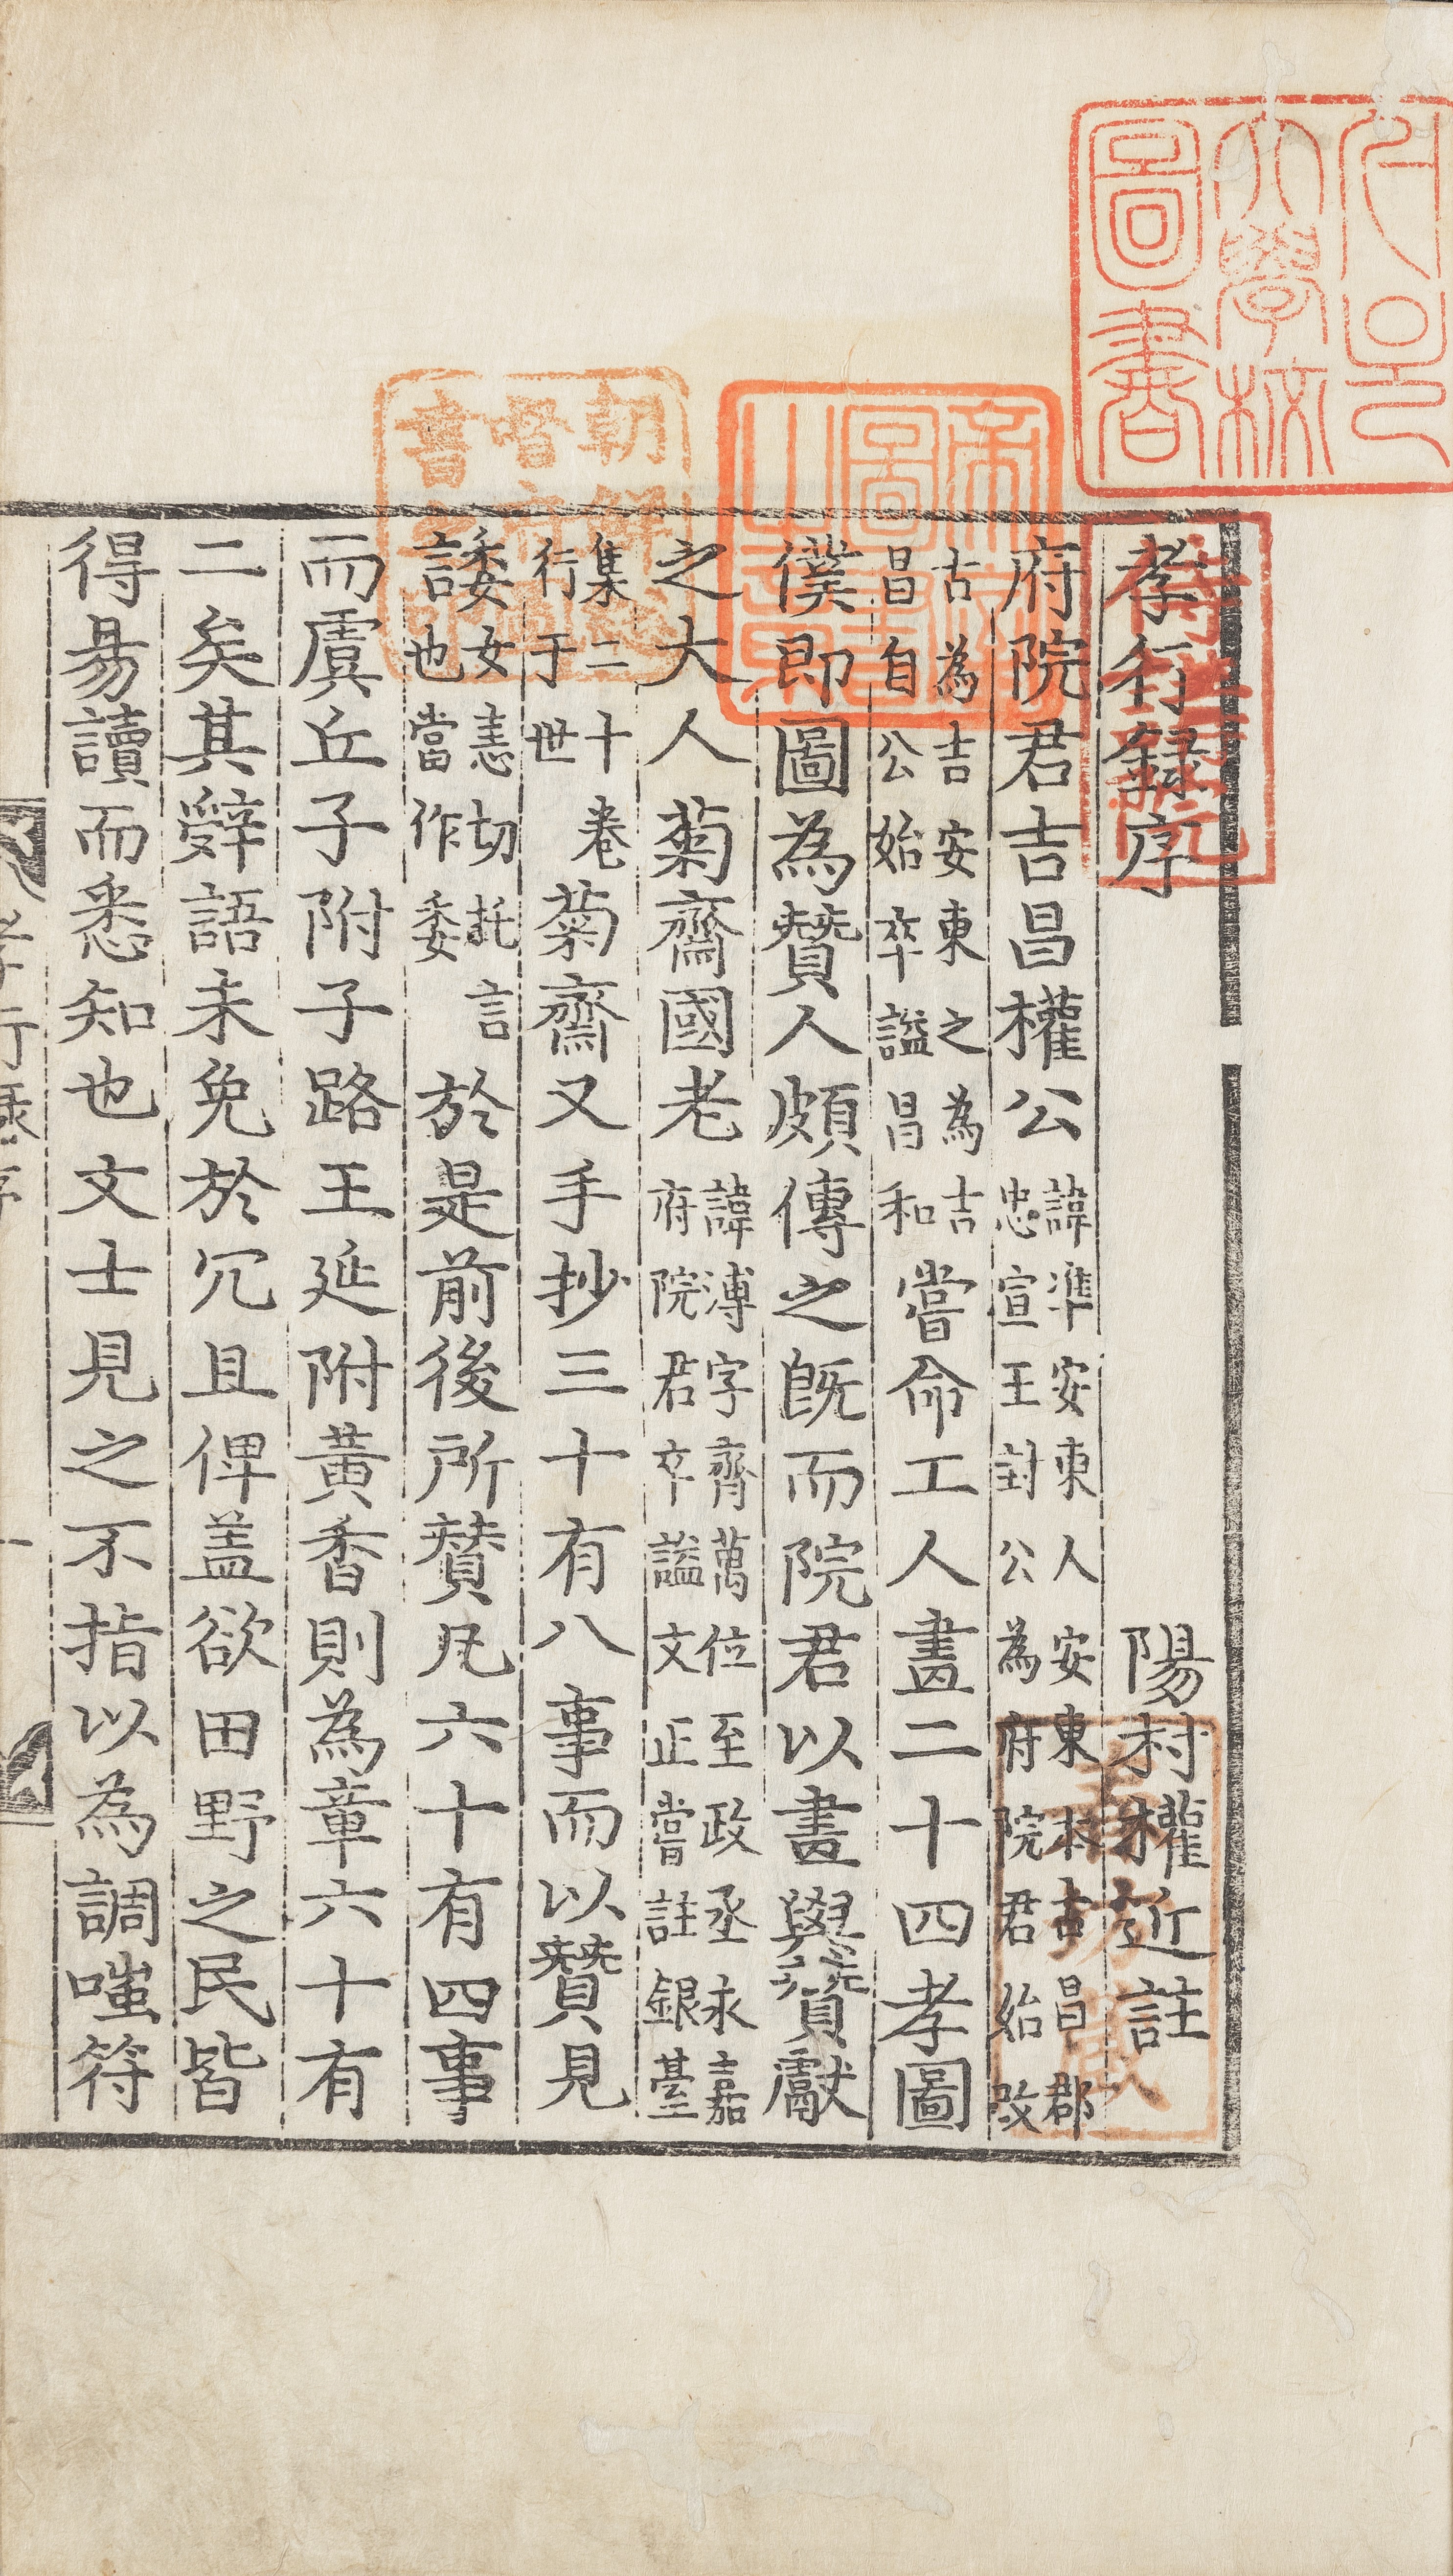 孝行録序
陽村權近註
府院君吉昌權公諱準安東人安東本古昌郡忠宣王封公為府院君始改
古為吉安東之為吉昌自公始卒謚昌和嘗命工人畫二十四孝圖
僕即圖為贊人頗傳之旣而院君以畫與贊獻
之大人菊齋國老諱溥字齊萬位至政丞永嘉府院君卒謚文正嘗註銀臺
集二十卷行于世菊齋又手抄三十有八事而以贊見
諉女恚切託言也當作委於是前後所贊凡六十有四事
而虞丘子附子路王延附黃香則為章六十有
二矣其辭語未免於冗且俚盖欲田野之民皆
得易讀而悉知也文士見之不指以為調嗤符
孝行録序
圖書
大學校
帝國圖書
朝